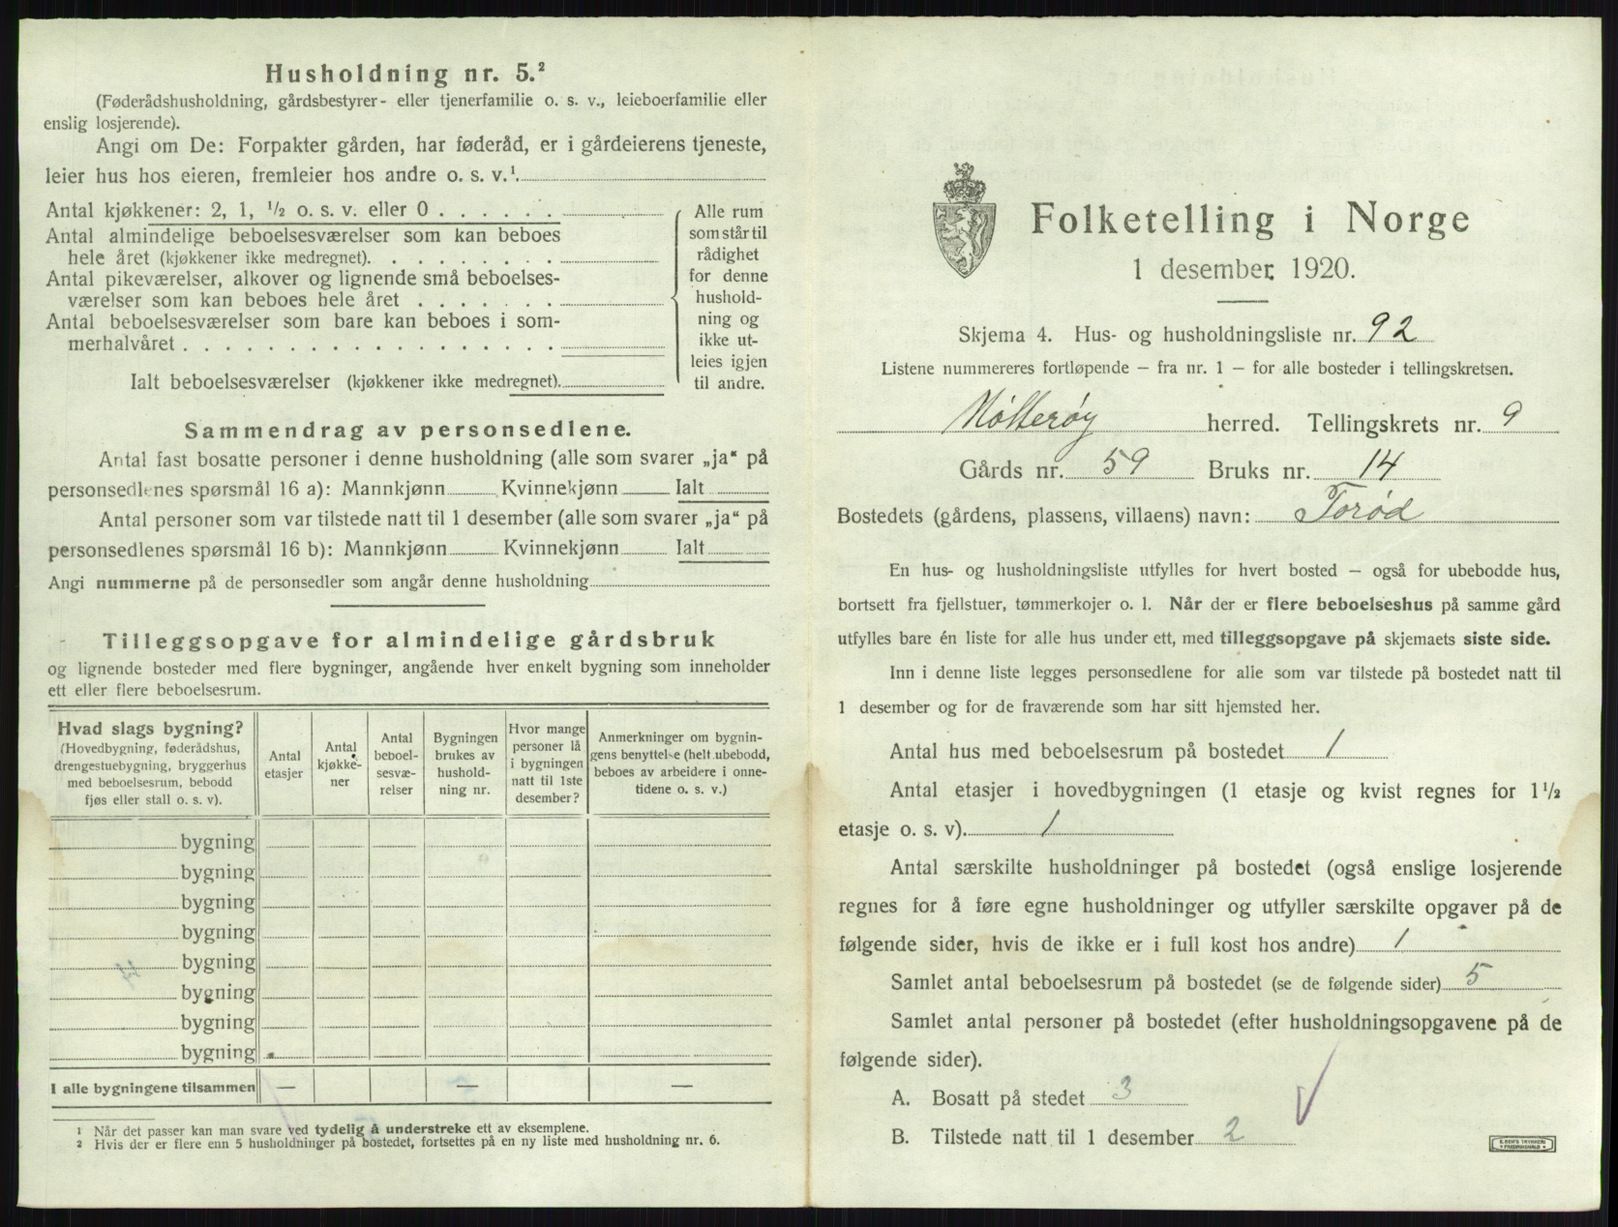 Husholdning nr. 5.²
(Føderådshusholdning, gårdsbestyrer- eller tjenerfamilie o. s. v., leieboerfamilie eller
enslig losjerende).
Angi om De: Forpakter gården, har føderåd, er i gårdeierens tjeneste,
leier hus hos eieren, fremleier hos andre o. s. v.¹
Antal kjøkkener: 2, 1, ½ o. s. v. eller 0
Antal almindelige beboelsesværelser som kan beboes
hele året (kjøkkener ikke medregnet).
Antal pikeværelser, alkover og lignende små beboelses-
værelser som kan beboes hele året
Antal beboelsesværelser som bare kan beboes i som-
merhalvåret
Ialt beboelsesværelser (kjøkkener ikke medregnet).
Alle rum
som står til
rådighet
for denne
hushold-
ning og
ikke ut-
leies igjen
til andre.
Sammendrag av personsedlene.
Antal fast bosatte personer i denne husholdning (alle som svarer „ja“ på
personsedlenes spørsmål 16 a): Mannkjønn Kvinnekjønn Ialt
Antal personer som var tilstede natt til 1 desember (alle som svarer „ja“ på
personsedlenes spørsmål 16 b): Mannkjønn Kvinnekjønn Ialt
Angi nummerne på de personsedler som angår denne husholdning
Tilleggsopgave for almindelige gårdsbruk
og lignende bosteder med flere bygninger, angående hver enkelt bygning som inneholder
ett eller flere beboelsesrum.
Hvad slags bygning?
(Hovedbygning, føderådshus,
drengestuebygning, bryggerhus
med beboelsesrum, bebodd
fjøs eller stall o. s. v).
Antal
etasjer
Antal
kjøkke-
ner
Antal
beboel-
sesvæ-
relser
Bygningen
brukes av
hushold-
ning nr.
Hvor mange
personer lå
i bygningen
natt til 1ste
desember?
Anmerkninger om bygnin-
gens benyttelse (helt ubebodd,
beboes av arbeidere i onne-
tidene o. s. v.)
bygning
bygning
bygning
bygning
bygning
bygning
bygning
bygning
I alle bygningene tilsammen — — —
¹ Når det passer kan man svare ved tydelig å understreke ett av eksemplene.
² Hvis der er flere enn 5 husholdninger på bostedet, fortsettes på en ny liste med husholdning nr. 6.
Folketelling i Norge
1 desember 1920.
Skjema 4. Hus- og husholdningsliste nr. 92
Listene nummereres fortløpende – fra nr. 1 – for alle bosteder i tellingskretsen.
Nøtterøy herred. Tellingskrets nr. 9
Gårds nr. 59 Bruks nr. 14
Bostedets (gårdens, plassens, villaens) navn: Torød
En hus- og husholdningsliste utfylles for hvert bosted – også for ubebodde hus,
bortsett fra fjellstuer, tømmerkojer o. l. Når der er flere beboelseshus på samme gård
utfylles bare én liste for alle hus under ett, med tilleggsopgave på skjemaets siste side.
Inn i denne liste legges personsedlene for alle som var tilstede på bostedet natt til
1 desember og for de fraværende som har sitt hjemsted her.
Antal hus med beboelsesrum på bostedet 1
Antal etasjer i hovedbygningen (1 etasje og kvist regnes for 1½
etasje o. s. v). 1
Antal særskilte husholdninger på bostedet (også enslige losjerende
regnes for å føre egne husholdninger og utfyller særskilte opgaver på de
følgende sider, hvis de ikke er i full kost hos andre) 1
Samlet antal beboelsesrum på bostedet (se de følgende sider) 5
Samlet antal personer på bostedet (efter husholdningsopgavene på de
følgende sider).
A. Bosatt på stedet 3
B. Tilstede natt til 1 desember 2